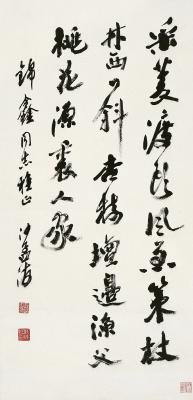 采菱渡頭風急策杖
林西日斜杏樹壇邊漁父
桃花源裏人家
錦鑫同志雅正
沙孟海